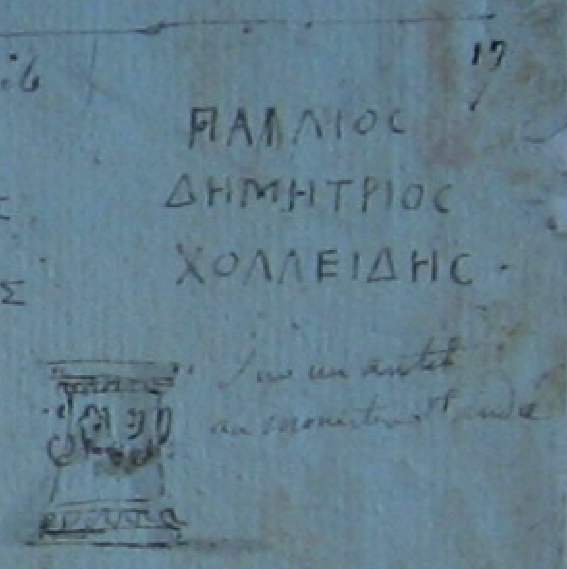 17
ΠΑΛΛΙΟC
ΔΗΜΗΤΡΙΟC
ΧΟΛΛΕΙΔΗC.
Sur un autel
au monastere St André
Σ